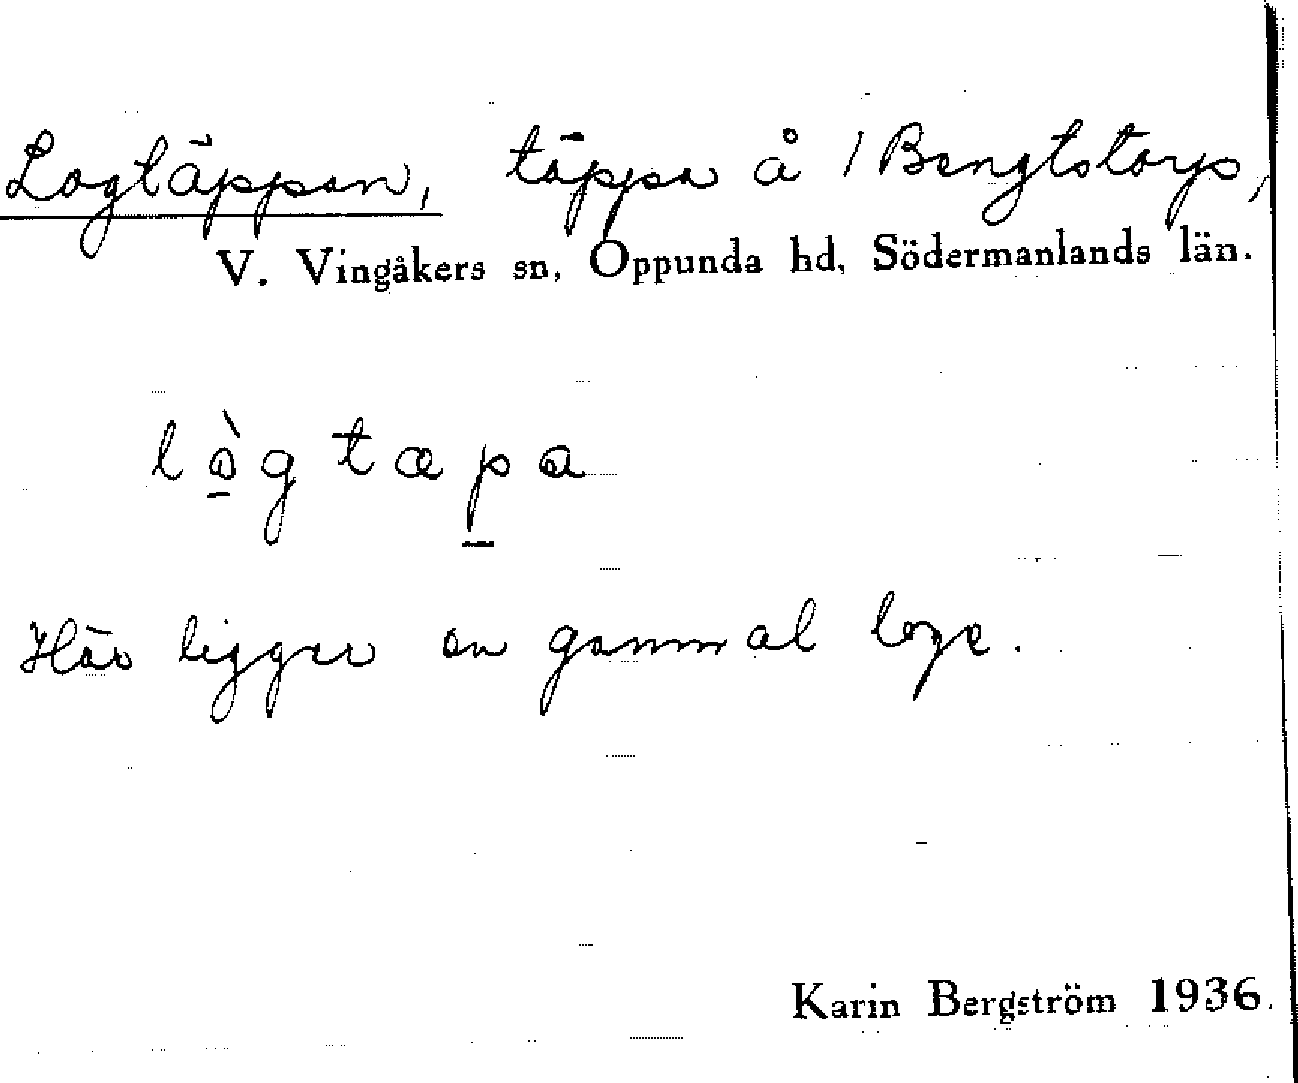 Logtäppan, täppa å / Bengtstorp,
V. Vingåkers sn, Oppunda hd, Södermanlands län.
lò̲gtæp̲a
Här ligger en gammal loge.
Karin Bergström 1936.